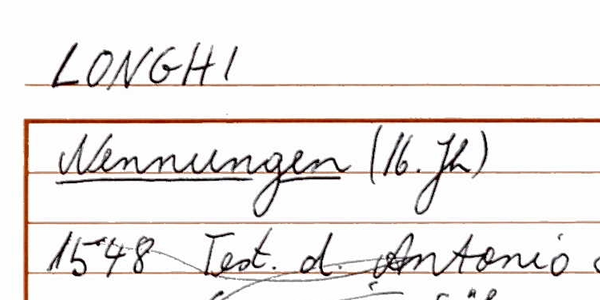 LONGHI
Nennungen (16. Jh)
1548 Test. d. Antonio